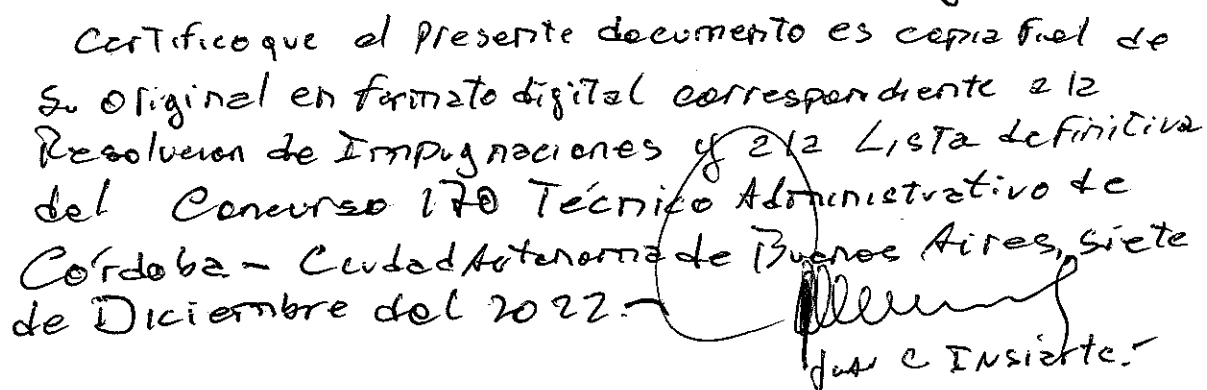 Certifico que el presente documento es copia fiel de
su original en formato digital correspondiente a la
Resolución de Impugnaciones y a la Lista definitiva
del Concurso 170 Técnico Administrativo de
Córdoba - Ciudad Autonoma de Buenos Aires, siete
de Diciembre del 2022.-
C Insiarte.-